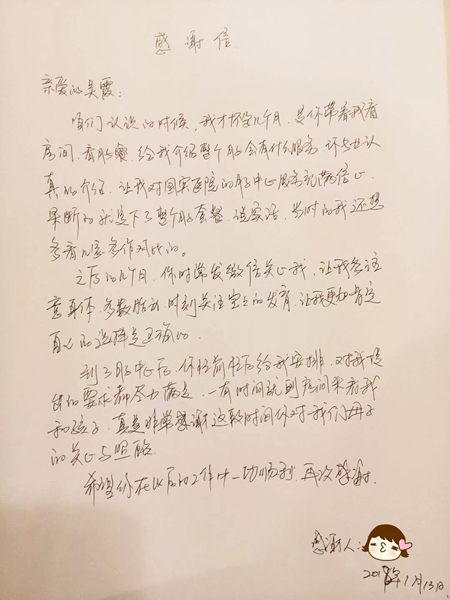 感谢信
亲爱的吴霞：
咱们认识的时候，我才怀宝几个月，是你带着我看
房间，看月子餐，给我介绍整个月子会有什么服务，环与世认
真的介绍，让我对国宾医院的月子中心服务充满信心
果断的就选下了整个月的套餐，说实话，当时的我还想
多看几家多作对比的。
之后的几个月，你时常发微信关心我，让我多注
意身体，多数胎动，时刻关注宝宝的发育，让我更加肯定
自己的选择是正确的。
到了月子中心后，你忙前忙后给我安排，对我提
出的要求都尽力满足，一有时间就到房间来看我
和孩子，真是非常感谢这段时间你对我们母子
的关心与照顾
希望你在以后的工作中一切顺利，再次感谢
感谢人：
年1月13日